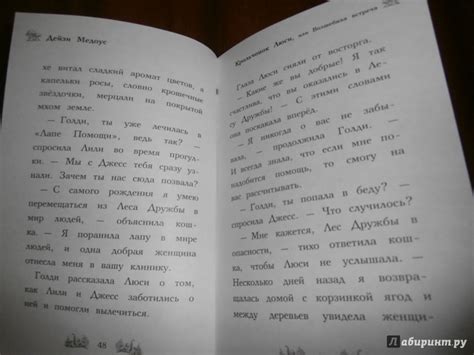 Дейзи Медоус
хе витал сладкий аромат цветов, а
капельки росы, словно крошечные
звёздочки, мерцали на покрытой
мхом земле.
— Голди, ты уже лечилась в
«Лапе Помощи», ведь так? —
спросила Лили во время прогул-
ки. — Мы с Джесс тебя сразу уз-
нали. Зачем ты нас сюда позвала?
— С самого рождения я умею
перемещаться из Леса Дружбы в
мир людей, — объяснила кош-
ка. — Я поранила лапу в мире
людей, и одна добрая женщина
отнесла меня в вашу клинику.
Голди рассказала Люси о том,
как Лили и Джесс заботились о
ней и помогли вылечиться.
48
Крольчишка Люси, или Волшебная встреча
Глаза Люси сияли от восторга.
— Какие же вы добрые! Я так
счастлива, что вы оказались в Ле-
су Дружбы! — С этими словами
она поскакала вперёд.
— Я никогда о вас не забы-
вала, — продолжила Голди. —
И всегда знала, что если мне пона-
добится помощь, то смогу на
вас рассчитывать.
— Голди, ты попала в беду? —
спросила Джесс. — Что случилось?
— Мне кажется, Лес Дружбы в
опасности, — тихо ответила кош-
ка, чтобы Люси не услышала. —
Несколько дней назад я возвра-
щалась домой с корзинкой ягод и
между деревьев увидела женщи-
Лабиринт.ру